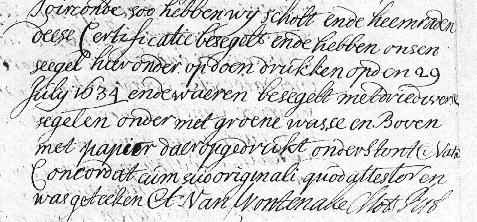 Oirconde, soo hebben wij scholt ende heemraden
deese Certificatie besegelt ende hebben onsen
seegel hier onder op doen drukken op den 29
July 1634 ende waeren besegelt met drie diverse
segelen onder met groene wasse en Boven
met papier daer opgedrickt onder stont
Concordat cum suo originali quod attestor en
was geteeken Ct. Van Montenake Not. Pub